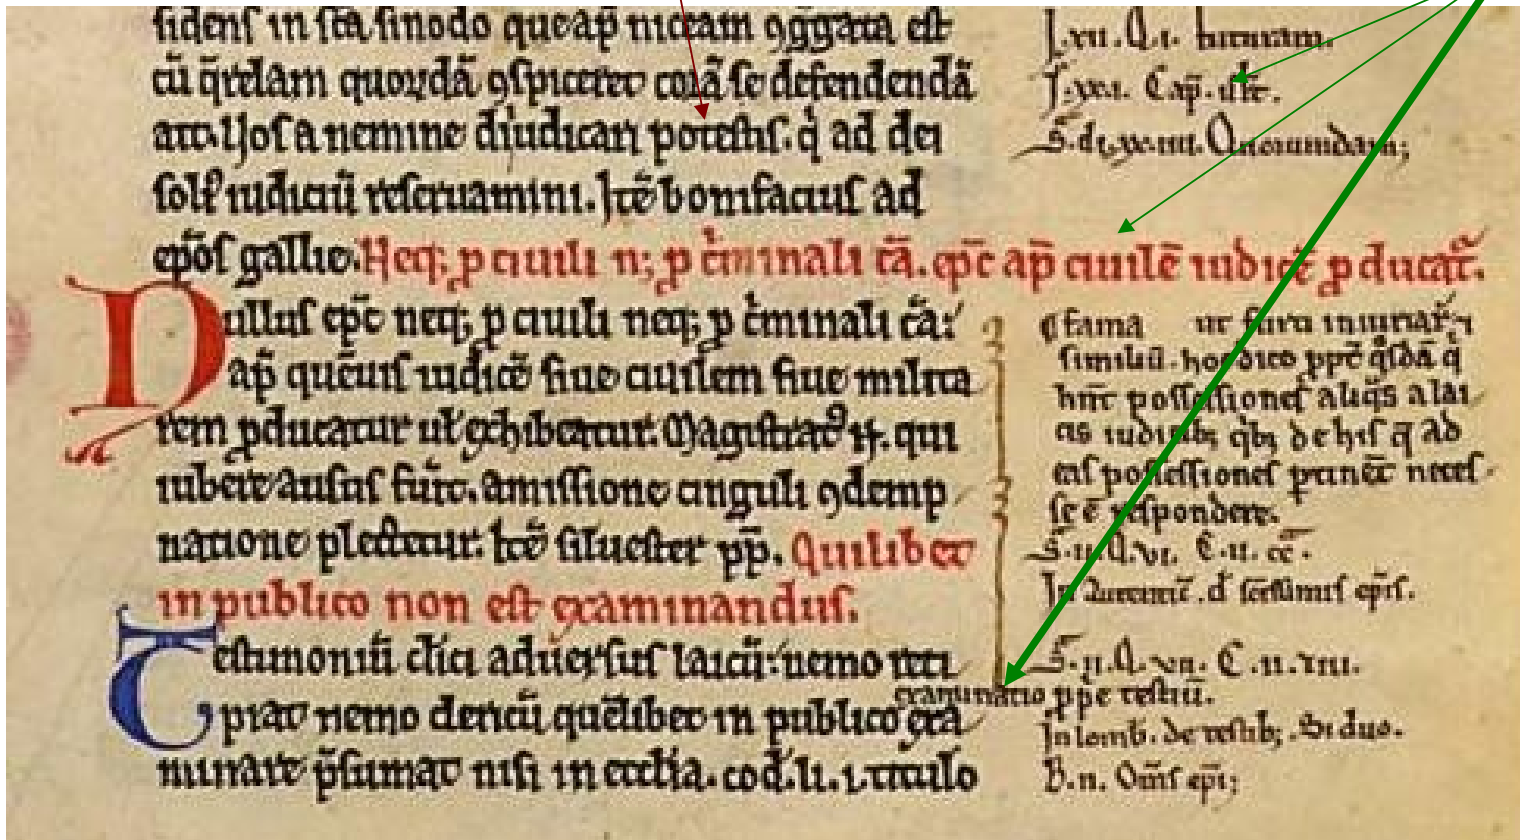 sidens in sc̄a sinodo que ap̄ niceam ꝯg̃gata est
cū q̄relam quorꝺā ꝯspiceret corā se defendendā
ait. Vos a nemine diiudicari potestis. q̓ ad dei
soliꝰ iudiciū reseruamini. Itē bonifacius ad
ep̄os gallie. Neq; ꝑ ciuili n; ꝑ c̓minali cā. ep̄c ap̄ ciuilē iudicē ꝓducat᷑.
Nullus ep̄c neq; ꝑ ciuili neq; ꝑ c̓minali cā:
ap̄ quēuis iudicē siue ciuilem siue milita
rem ꝓducatur ul̄ exhibeatur. Magistratꝰ qui
iubere ausus fu͛it. amissione cinguli ꝯdemp
natione plectetur. Itē siluester pp̄. Quilibet
in publico non est examinandus.
Testimoniū clīci aduersus laicū: nemo reci
piat nemo clericū quēlibet in publico exa
minare p̄sumat nisi in eccl̄ia. cod̄. li. i. titulo
J. xii. Q. i. futuram.
J. xvi. Cap̄.
S̄. di. xciiii. Quorumdam;
fama ut furti iniuriar᷑ ⁊
similiū. hoc dico ppt̄ q̓sdā q̓
hn̄t possessiones aliq̓s a lai
cis iudicib; q̓b; de his q̄ ad
eas possessiones ꝑtinēt neces
se ē respondere.
S̄. ii. Q. vi. C. ii. ec̄.
In Autenti͛c. d̓ sc̄issimis ep̄is.
S̄. ii. Q. vii. C. ii. viii.
examinatio ppt̄ testiū.
In lomb̄. de testib;. Si duo.
B. n. Om̄s ep̄i;